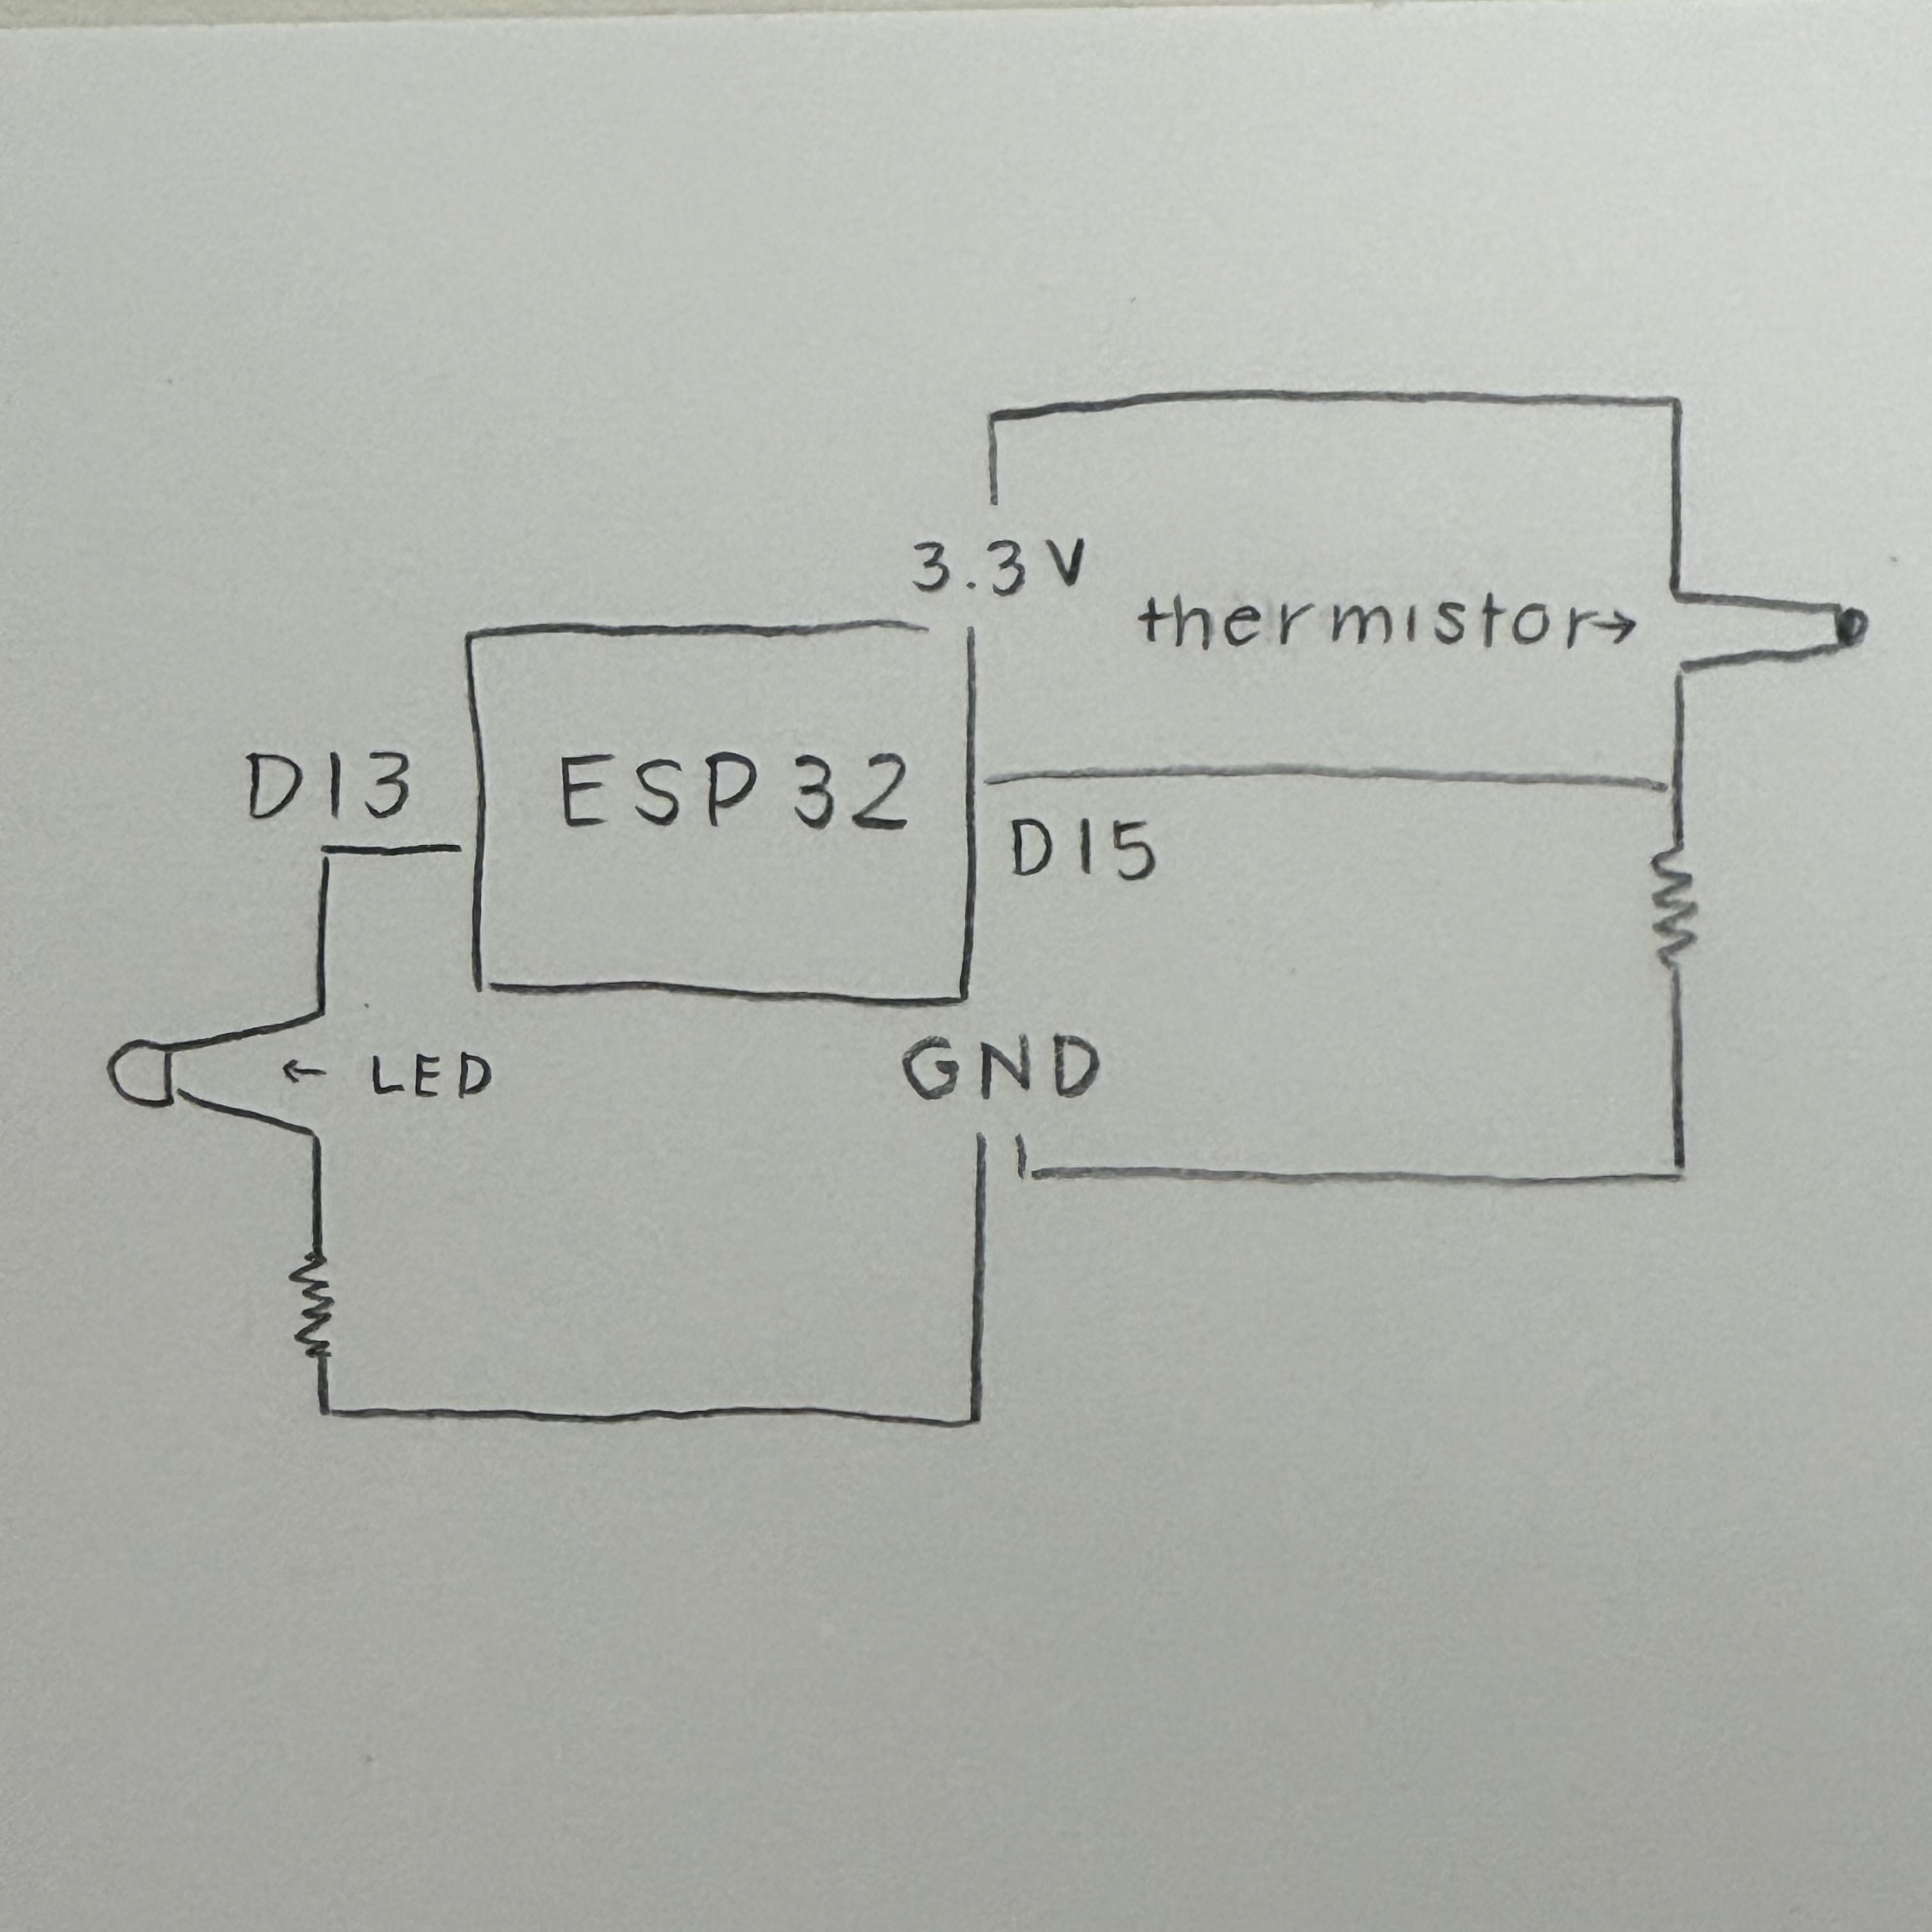 3.3V
thermistor→
D13
ESP32
D15
← LED
GND